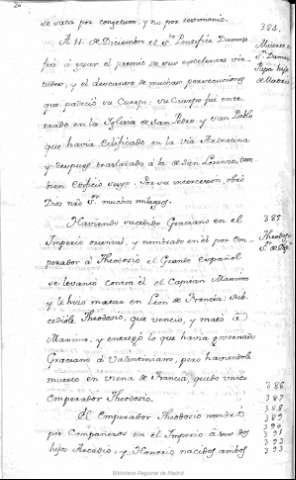 se saca por congetura, y no por testimonio.
A 11. de Diciembre el Sto. Pontifice Damaso
fué á gozar el premio de sus excelentes vir-
tudes, y el descanso de muchas persecuciones
que padeció su Cuerpo. Su Cuerpo fué ente-
rrado en la Iglesia de San Pedro y San Pablo
que havia edificado en la via Ardeatina
y despues trasladado á la de San Lorenzo, tam-
bien edificio suyo. Por su intercesion, obró
Dios nro Sr. muchos milagros.
Haviendo sucedido Graciano en el
Imperio oriental, y nombrado en él por com-
pañador á Theodosio el Grande español
se levantó contra él el Capitan Maximo
y le hizo matar en Leon de Francia: Suce-
diole Theodosio, que venció, y mató á
Maximo, y entregó lo que havia governado
Graciano á Valentiniano, pero haviendole
muerto en Viena de Francia, quedó unico
Emperador Theodosio.
El Emperador Theodosio nombró
por Compañeros en el Imperio á sus dos
hijos Arcadio, y Honorio nacidos ambos
384.
Muerte de
Sn. Damaso
Papa hijo
de Madrid
385
Theodosio
386
387
388
389
390
391
392
393
Biblioteca Regional de Madrid